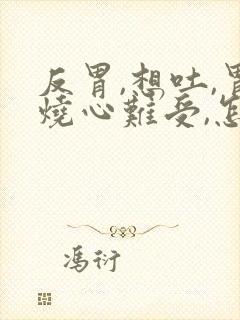 反胃,想吐,胃
燒心難受,怎
馮衍